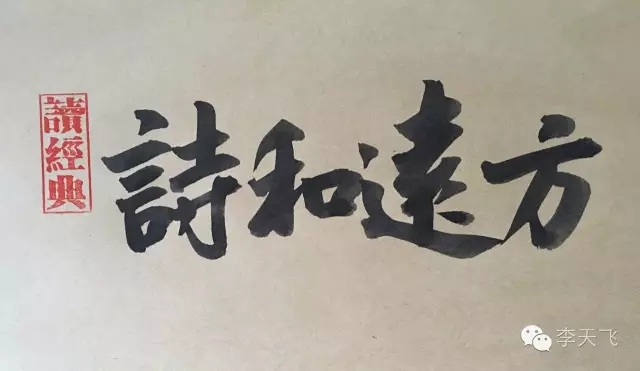 讀經典
詩和遠方
李天飞